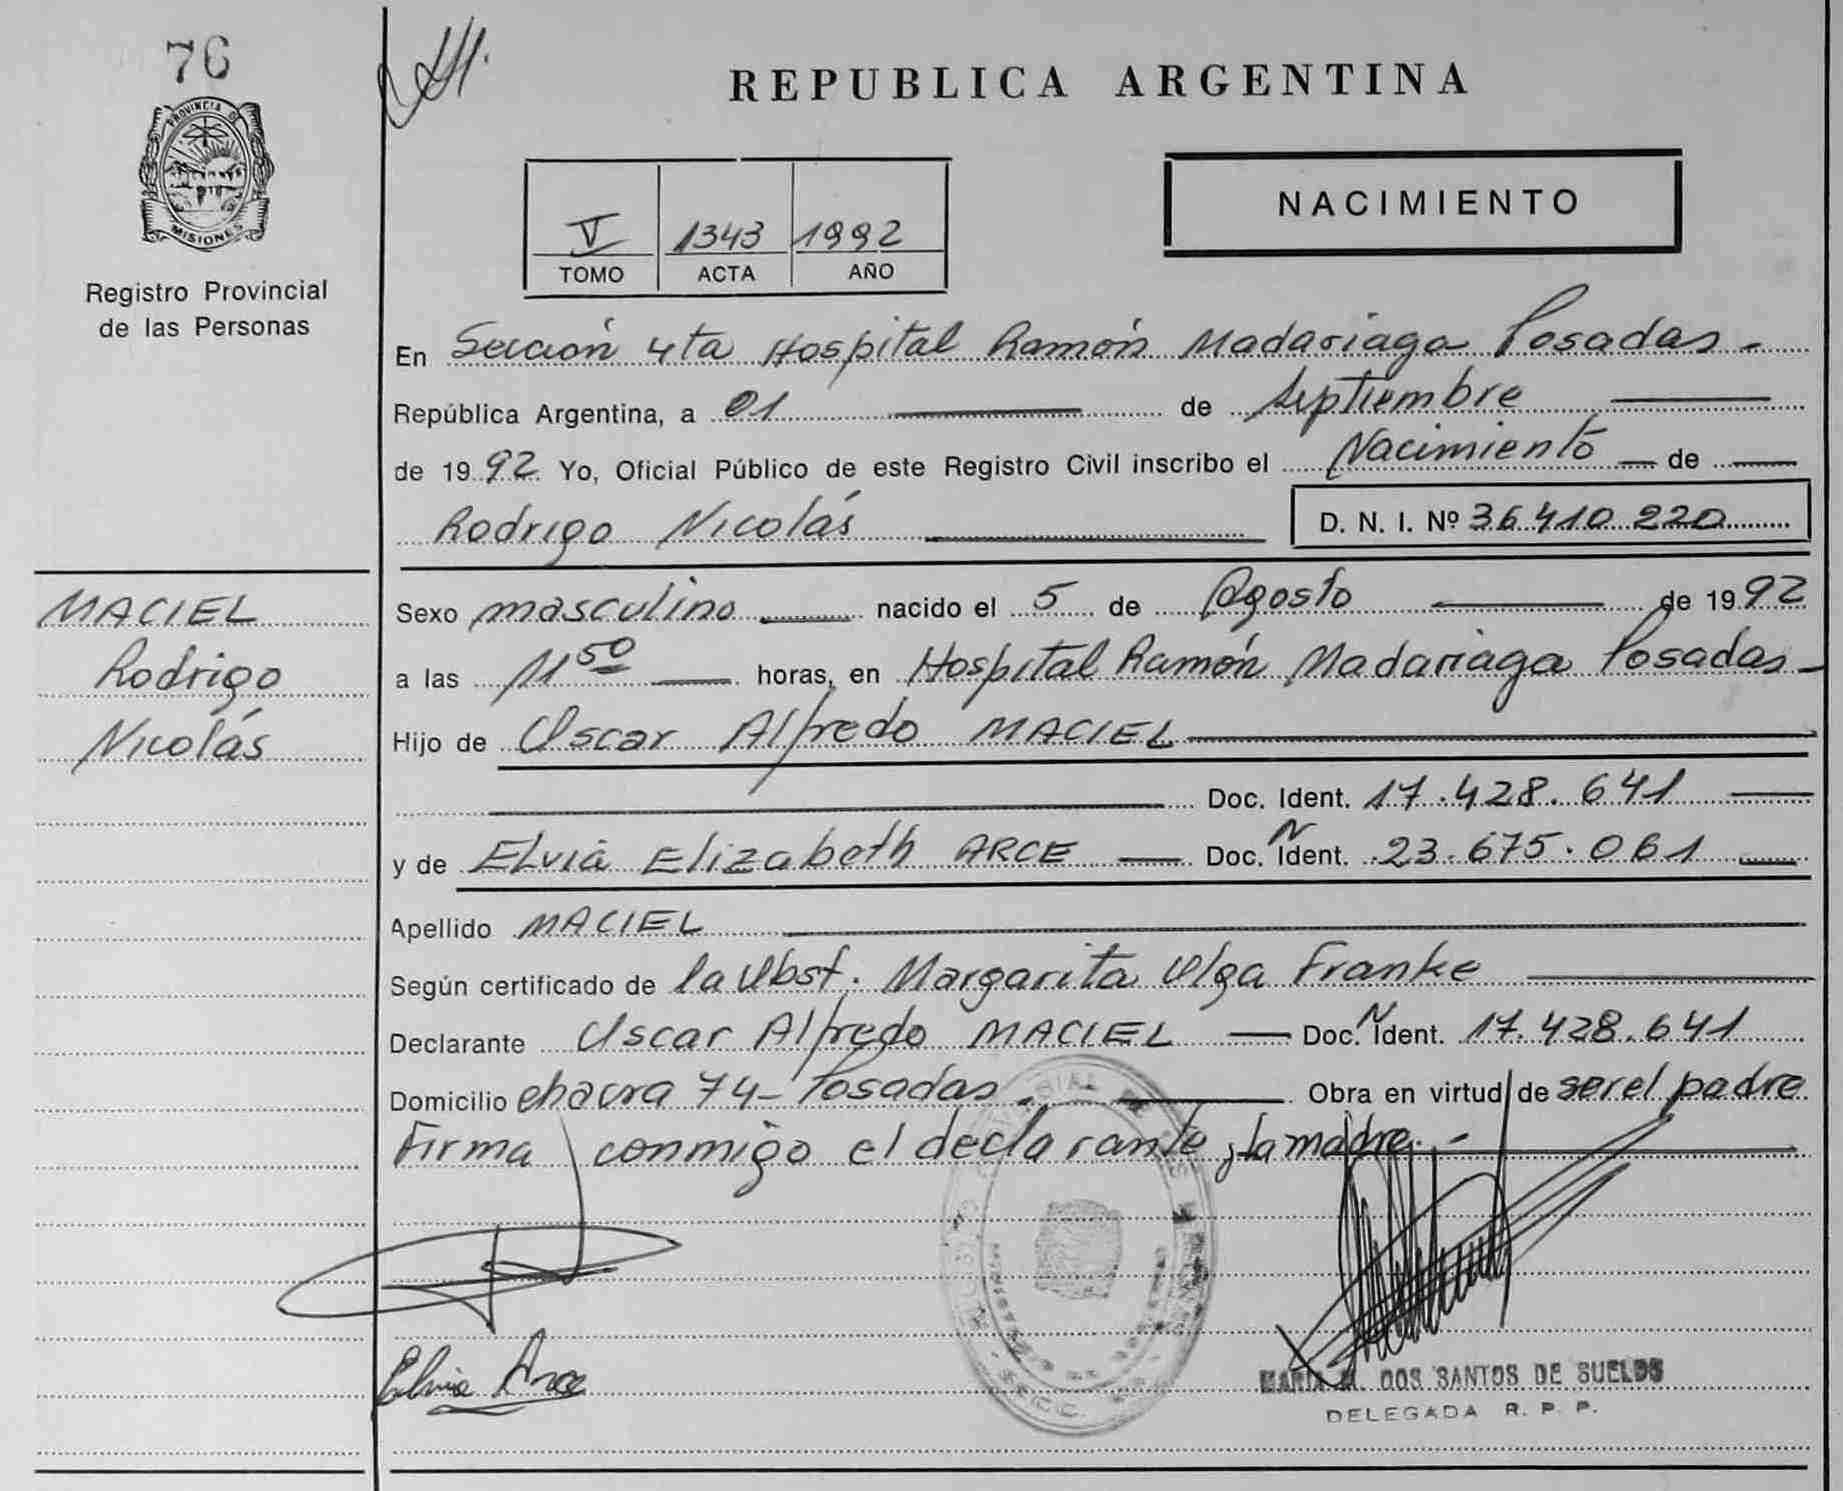 76
PROVINCIA DE
MISIONES
Registro Provincial
de las Personas
MACIEL
Rodrigo
Nicolás
REPUBLICA ARGENTINA
V 1343 1992
TOMO ACTA AÑO
NACIMIENTO
En Sección 4ta Hospital Ramón Madariaga Posadas.
República Argentina, a 01 de septiembre
de 1992 Yo, Oficial Público de este Registro Civil inscribo el Nacimiento de
Rodrigo Nicolás D. N. I. Nº 36 410 220
Sexo masculino nacido el 5 de Agosto de 1992
a las 11 50 horas, en Hospital Ramón Madariaga Posadas
Hijo de Oscar Alfredo MACIEL
Doc. Ident. 17.428.641
y de Elvia Elizabeth ARCE Doc. N Ident. 23.675.061
Apellido MACIEL
Según certificado de la Obst. Margarita Olga Franke
Declarante Oscar Alfredo MACIEL Doc. N Ident. 17.428.641
Domicilio chacra 74- Posadas. Obra en virtud de ser el padre
Firma conmigo el declarante y la madre.-
Elvia Arce
MARIA M. DOS SANTOS DE SUELDO
DELEGADA R. P. P.